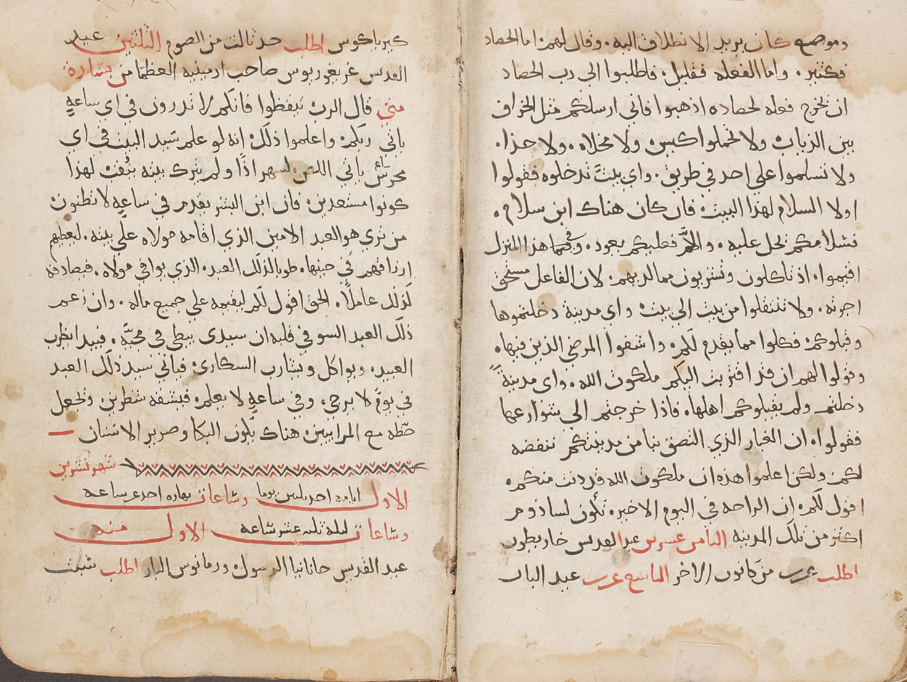 وموضع كان يريد الانطلاق اليه. وقال لهم: اما الحصاد
فكثير. واما الفعله فقليل. فاطلبوا الى رب الحصاد
ان يخرج فعله لحصاده اذهبوا فاني ارسلكم مثل الخراف
بين الذياب ولا تحملوا كيس ولا مخلاه. ولا حذا.
ولا تسلموا على احد في طريق. واي بيت تدخلوه فقولوا
اولا السلام لهذا البيت فان كان هناك ابن سلام.
فسلامكم يحل عليه. والا فعليكم يعود. وفي هذا المنزل
اقيموا. اذ تاكلون وتشربون مما لربهم: لان الفاعل مستحق
اجرته. ولا تنتقلوا من بيت الى بيت. واي مدينة دخلتموها
وقبلوكم: فكلوا مما يقدم لكم. واشفوا المرضى الذين فيها.
وقولوا لهم ان قد اقتربت اليكم ملكوت الله. واي مدينة
دخلتم ولم يقبلوكم اهلها. فاذا خرجتم الى شوارعها
فقولوا. ان الغبار الذي التصق بنا من مدينتكم ننفضه
لكم. ولكن اعلموا هذه ان ملكوت الله قد دنت منكم.
اقول لكم: ان الراحة في اليوم الاخير: تكون لسادوم
اكثر من تلك المدينة الثامن عشرين عيد القديس خاريطون
اطلب من كانون الاخر التاسع عشرين عيد الباب
كيرياكوس اطلب حد ثالث من الصوم الثلثين عيد
القدس غريغوريوس صاحب ارمينية العظما من بشارة
متى قال الرب تيقظوا فانكم لا تدرون في اي ساعة
ياتي ربكم: واعلموا ذلك: انه لو علم سيد البيت في اي
محرس ياتي اللص لسهر اذا ولم يترك بيته ينقب لهذا
كونوا مستعدين. فان ابن البشر يقدم في ساعة لا تظنون
من تري هو العبد الامين الذي اقامه مولاه على بيته. ليعطيهم
ارزاقهم في حينها. طوبا لذلك العبد. الذي يوافي مولاه. فيصادفه
كذلك عاملا. الحق اقول لكم ليقيمه على جميع ماله. وان زعم
ذلك العبد السو في قلبه ان سيدي يبطي في مجيه. فيبدا يضرب
العبيد. ويواكل ويشارب السكارى: فياتي سيد ذلك العبد
في يوم لا يرجى. وفي ساعة لا يعلم. فيشقه شطرين ويجعل
حظه مع المراييين هناك يكون البكا وصرير الاسنان
شهر تشرين
الاول ايامه احد ثلثين يوما وساعات نهاره احد عشر ساعة
وساعات ليله ثلثه عشر ساعة الاول منه
عيد القديس حانانيا الرسول: ورمانوس البار اطلب